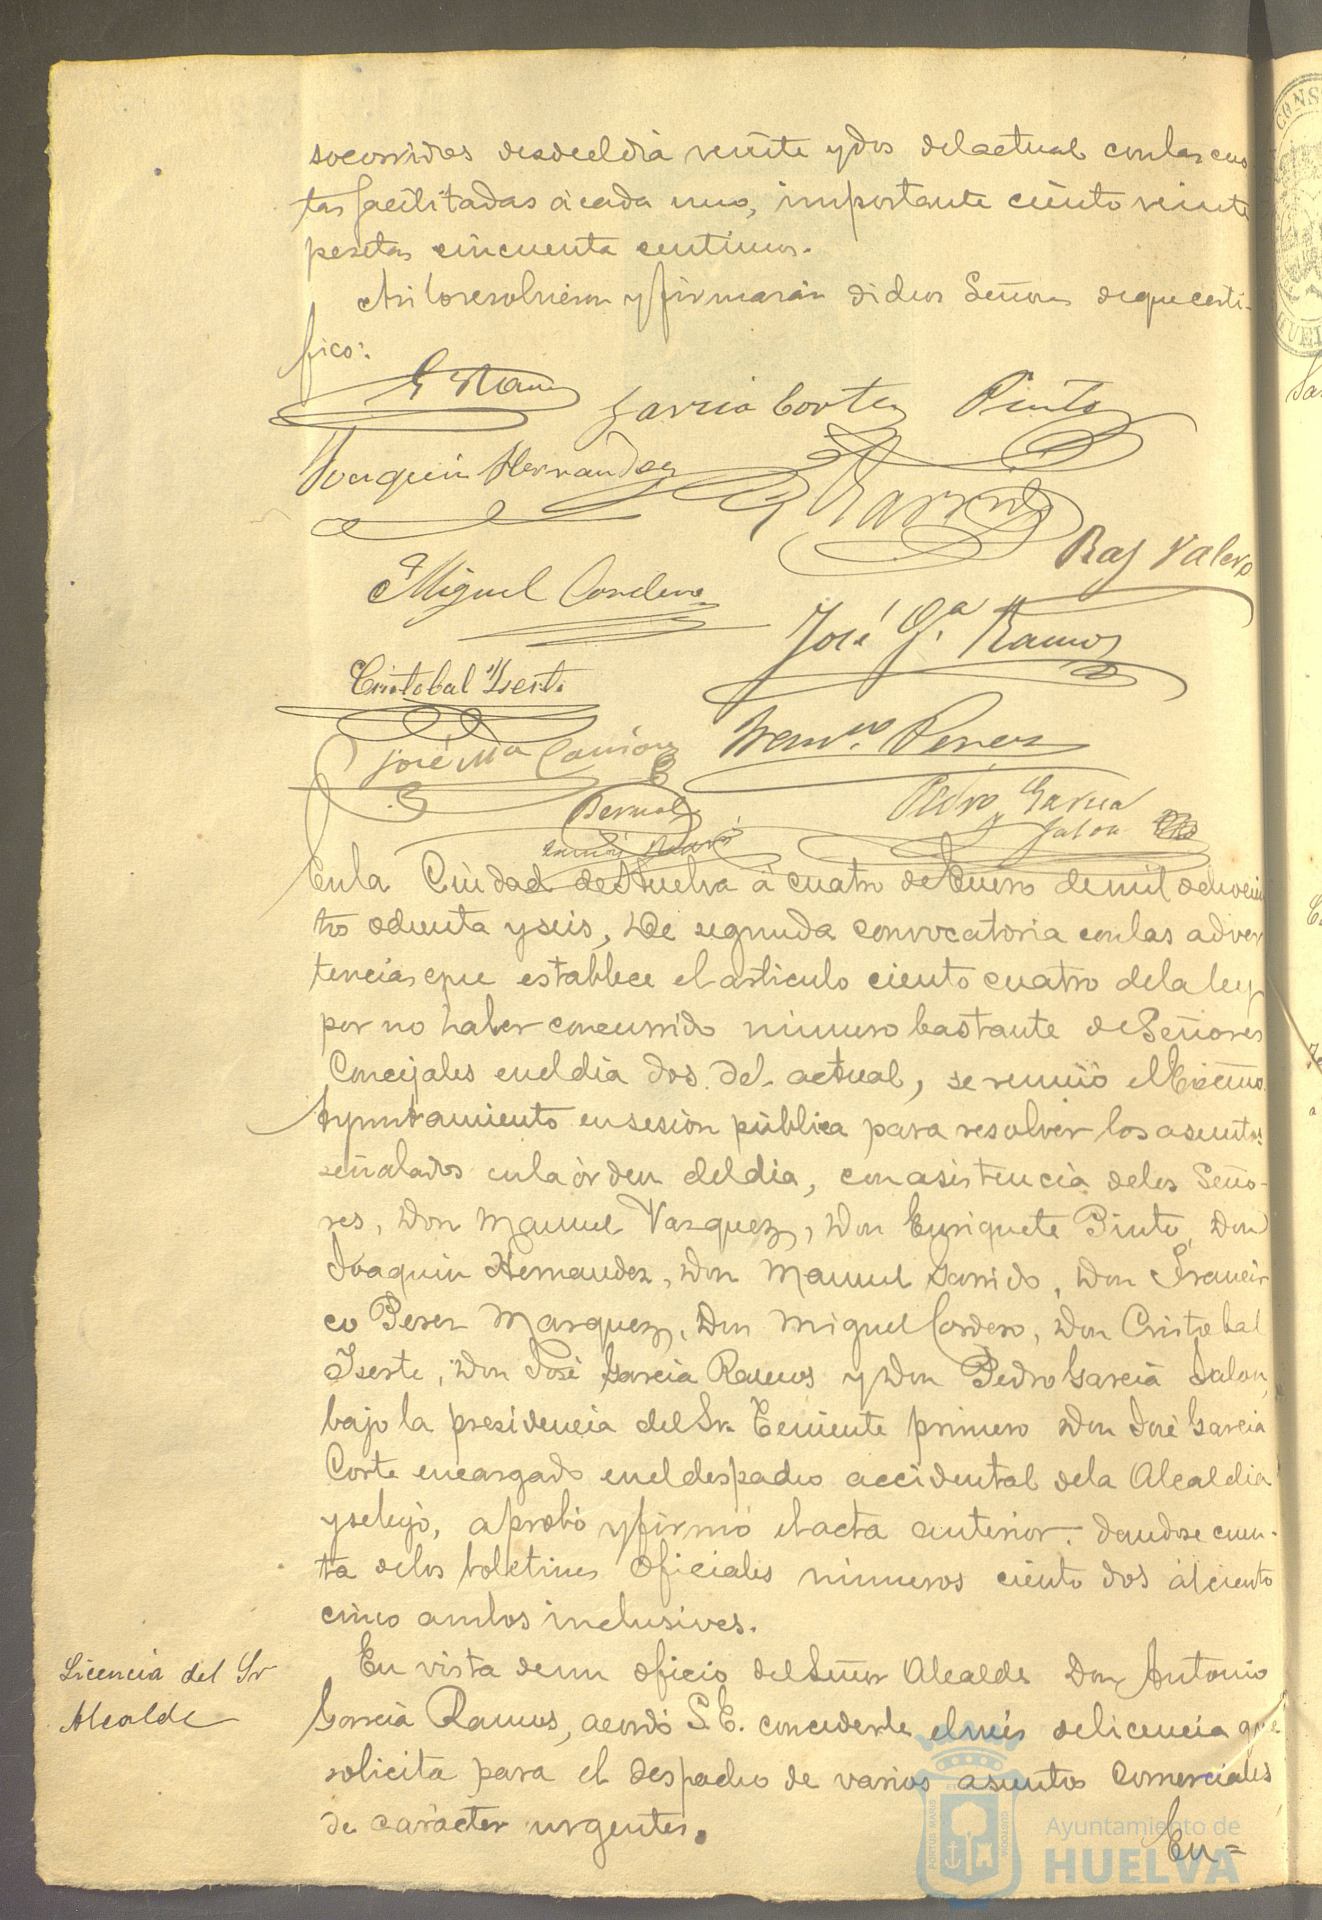 socorridos desde el dia veinte y dos del actual con las cuo
tas facilitadas á cada uno, importante ciento veinte
pesetas cincuenta centimos.
Asi lo resolvieron y firmarán dichos Señores de que certi-
fico:
Garcia Corte Pinto
Joaquin Hernandez
Garrido
Raf Valero
Miguel Cordero
José Gª Ramos
Cristobal Yserte
José Mª
Franco. Perez
Bernal
Pedro Garcia
Jalon
En la Ciudad de Huelva á cuatro de Enero de mil ochocien
tos ochenta y seis, De segunda convocatoria con las adver
tencias que establece el articulo ciento cuatro de la ley
por no haber concurrido número bastante de Señores
Concejales en el dia dos del actual, se reunió el Excmo.
Ayuntamiento en sesion pública para resolver los asuntos
señalados en la órden del dia, con asistencia de los Seño-
res, Don Manuel Vazquez, Don Enriquete Pinto, Don
Joaquin Hernandez, Don Manuel Garrido, Don Francis
co Perez Marquez, Don Miguel Cordero, Don Cristobal
Iserte, Don José Garcia Ramos y Don Pedro Garcia Jalon,
bajo la presidencia del Sr. Teniente primero Don José Garcia
Corte encargado en el despacho accidental de la Alcaldia
y se leyó, aprobó y firmó el acta anterior. dandose cuen-
ta de los boletines oficiales números ciento dos al ciento
cinco ambos inclusives.
Licencia del Sr
Alcalde
En vista de un oficio del Señor Alcalde Don Antonio
Garcia Ramos, acordó S.E. concederle el mes de licencia que
solicita para el despacho de varios asuntos comerciales
de carácter urgentes.
En=
Ayuntamiento de
HUELVA